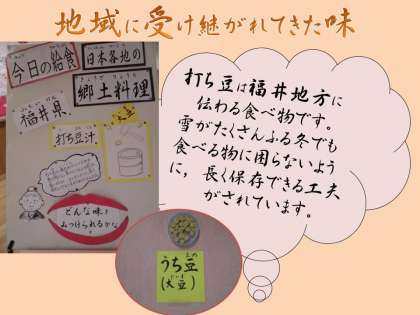 地域に受け継がれてきた味
今日の給食
日本各地の
郷土料理
福井県
大豆
打ち豆汁
どんな味を
みつけられるかな
打ち豆は福井地方に
伝わる食べ物です。
雪がたくさんふる冬でも
食べる物に困らないよう
に，長く保存できる工夫
がされています。
うち豆
(大豆)